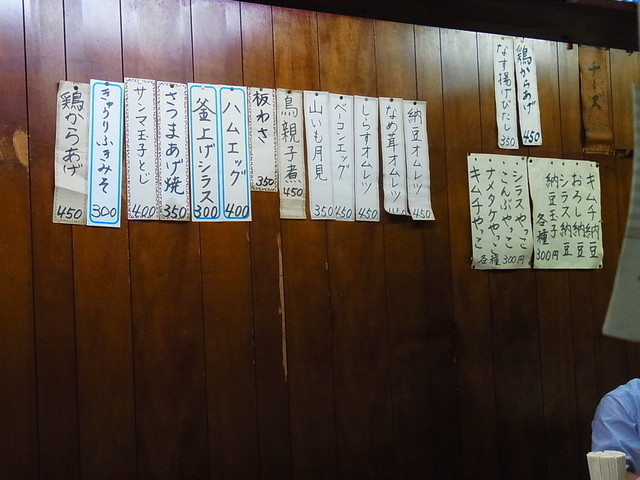 チーズ
鶏からあげ
450
なす揚げびたし
350
納豆オムレツ
450
なめ耳オムレツ
しらすオムレツ
450
ベーコンエッグ
450
山いも月見
350
鳥親子煮
450
板わさ
350
ハムエッグ
400
釜上げシラス
300
さつまあげ焼
350
サンマ玉子とじ
400
きゅうりふきみそ
300
鶏からあげ
450
キムチ納豆
おろし納豆
シラス納豆
納豆玉子
各種300円
シラスやっこ
こんぶやっこ
ナメタケやっこ
キムチやっこ
各種300円